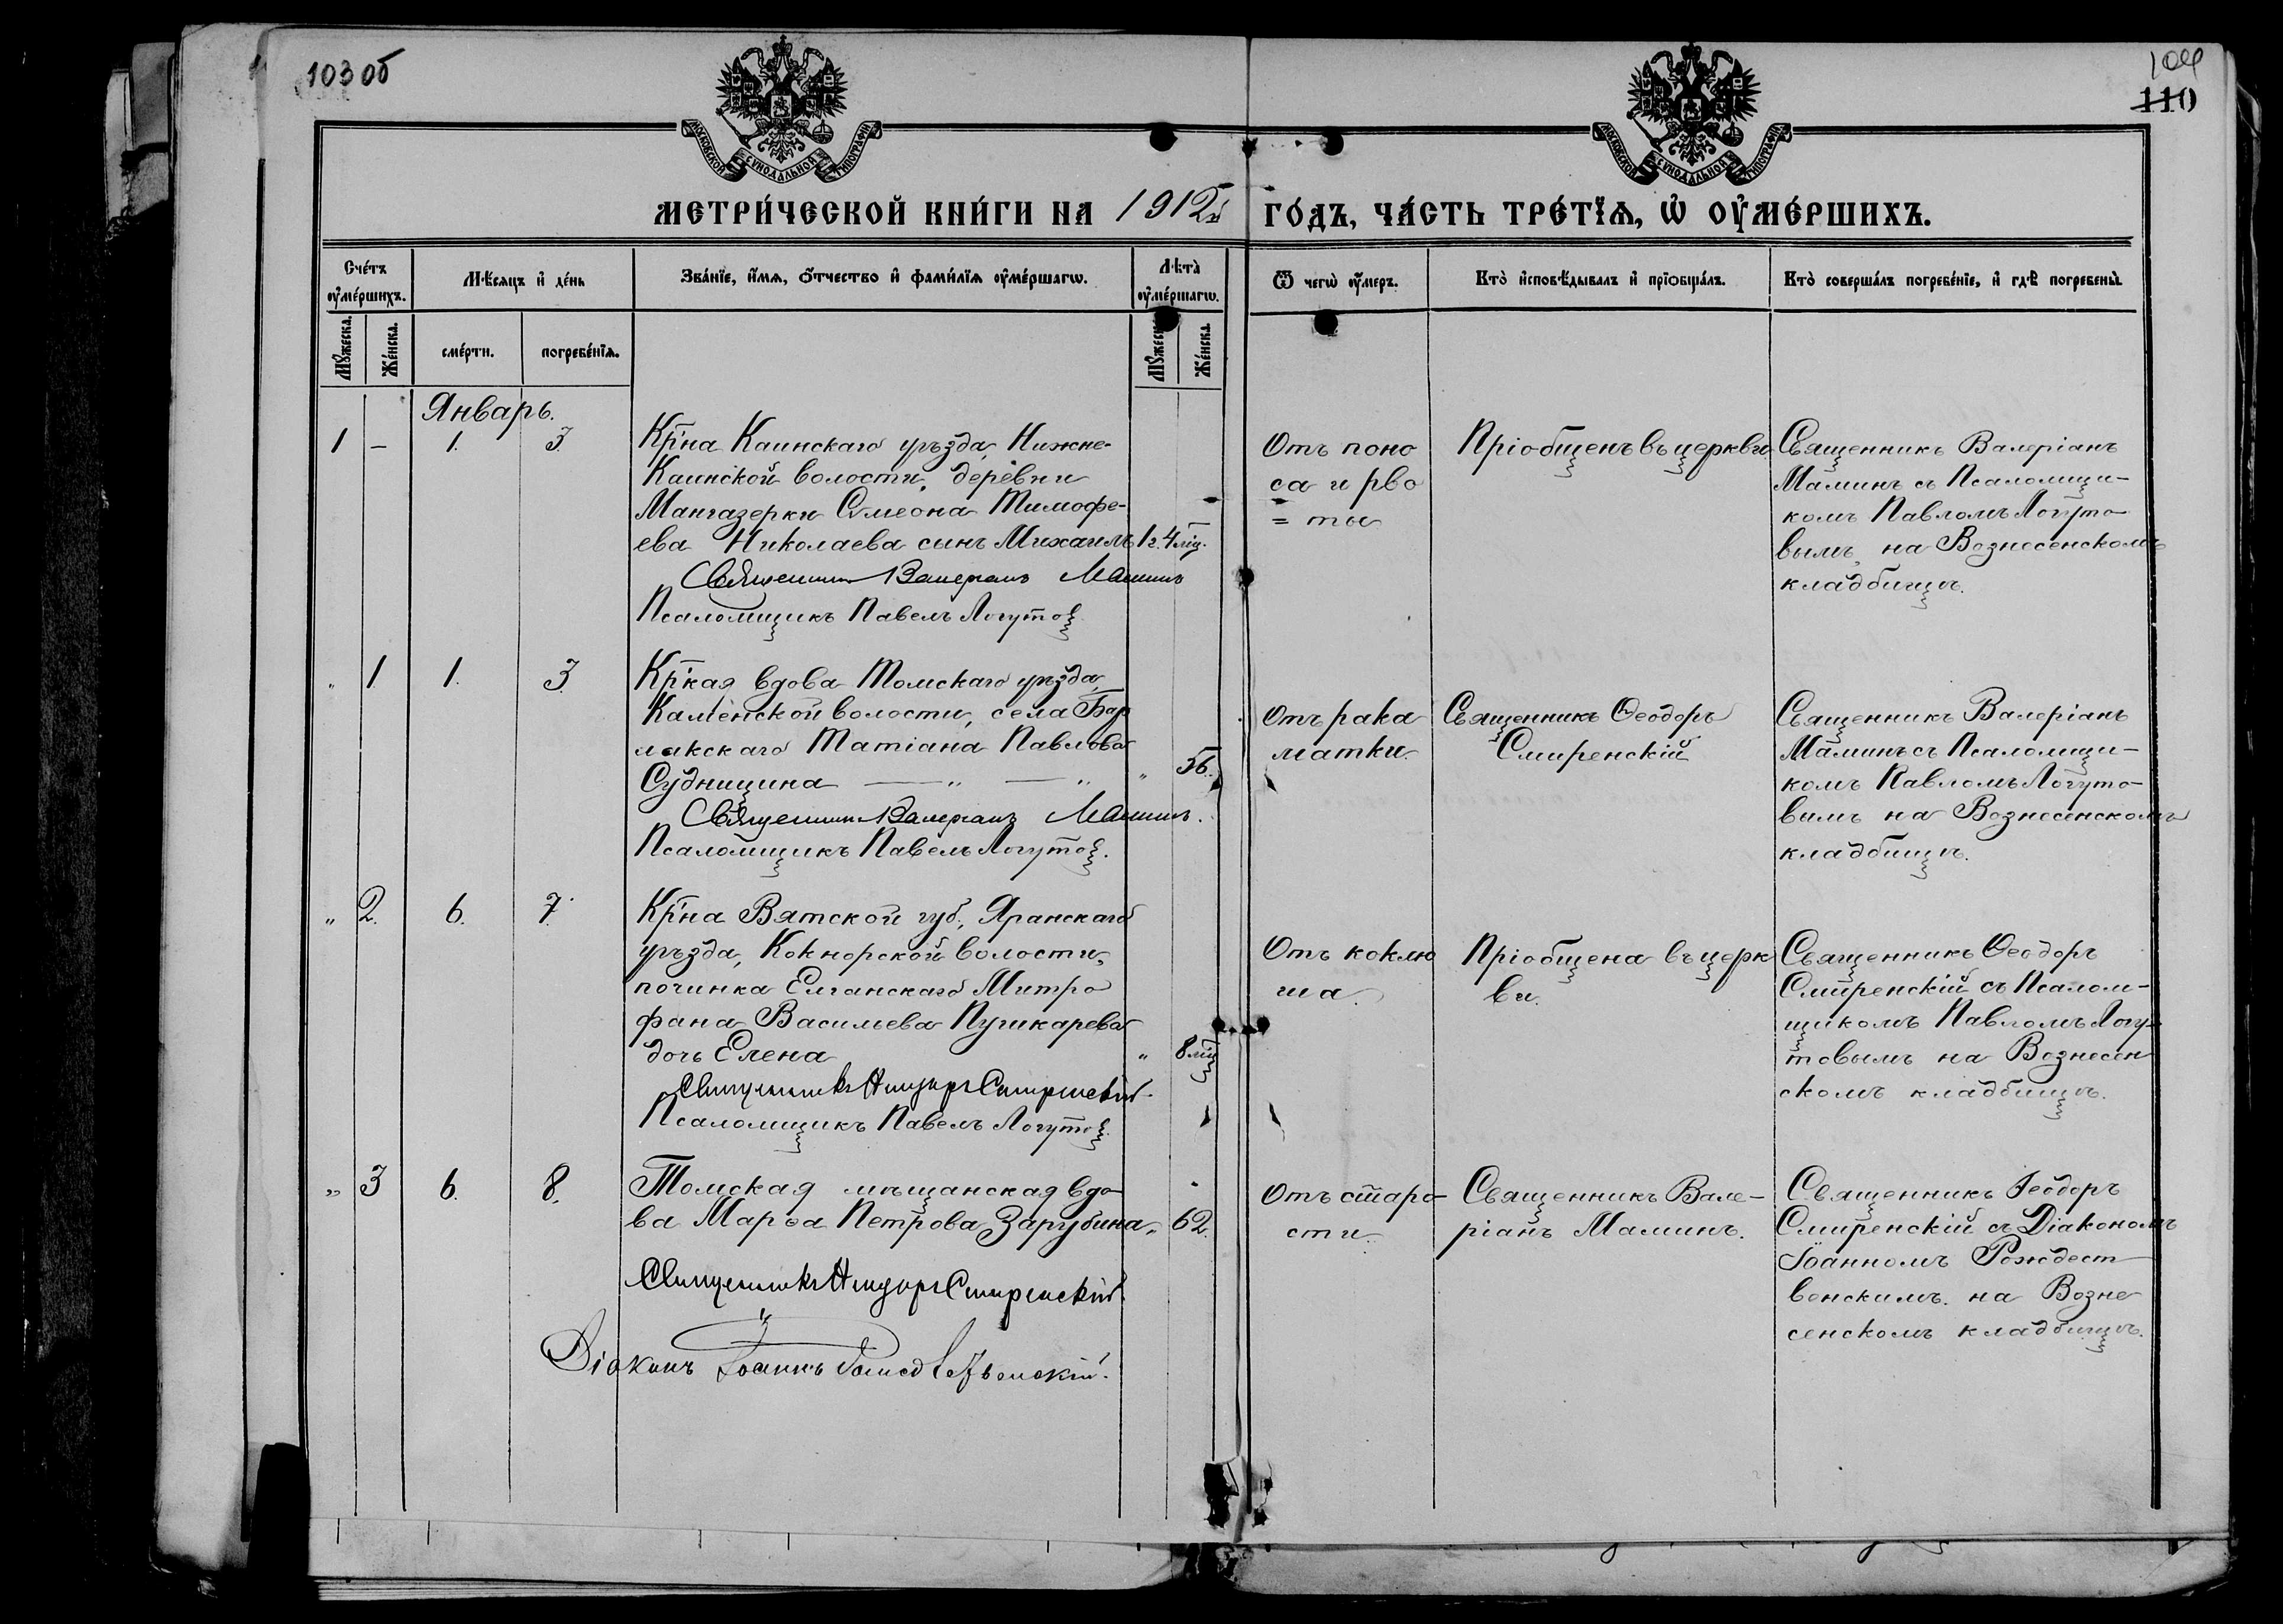 103 об
104
110
МОСКОВСКОЙ СѴНОДАЛЬНОЙ ТИПОГРАФІИ
МОСКОВСКОЙ СѴНОДАЛЬНОЙ ТИПОГРАФІИ
МЕТРИ́ЧЕСКОЙ КНИ́ГИ НА 1912й ГО́ДЪ, ЧА́СТЬ ТРЕ́ТІѦ, Ѡ҆ ОУ҆МЕ́РШИХЪ.
Сче́тъ оу҆ме́ршихъ.
Мѣ́сяцъ и҆ де́нь
Зва́нїе, и҆́мѧ, ѻ҆́тчество и҆ фами́лїѧ оу҆ме́ршагѡ.
Лѣ́та оу҆ме́ршагѡ.
Ѿ чегѡ̀ оу҆́меръ.
Кто̀ и҆сповѣ́дывалъ и҆ прїобща́лъ.
Кто̀ соверша́лъ погребе́нїе, и҆ гдѣ̀ погребены̀.
Мꙋ́жеска.
Же́нска.
сме́рти.
погребе́нїѧ.
Мꙋ́жеска.
Же́нска.
Январь.
1 – 1. 3.
Кр̄на Каинскаго уѣзда, Нижне-
Каинской волости, деревни
Мангазерки Сѵмеона Тимофе-
ева Николаева сынъ Михаилъ 1 г. 4 мц.
Священникъ Валеріанъ Маминъ
Псаломщикъ Павелъ Логутов
Отъ поно
са и рво
= ты
Пріобщенъ въ церкви
Священникъ Валеріанъ
Маминъ съ Псаломщи-
комъ Павломъ Логуто-
вымъ, на Вознесенскомъ
кладбищѣ.
" 1. 1. 3.
Кр̄кая вдова Томскаго уѣзда,
Каменской волости, села Вар
лакскаго Татіана Павлова
Судницина — " — " " 56.
Священникъ Валеріанъ Маминъ.
Псаломщикъ Павелъ Логутов.
Отъ рака
матки.
Священникъ Ѳеодоръ
Смиренскій
Священникъ Валеріанъ
Маминъ съ Псаломщи-
комъ Павломъ Логуто-
вымъ на Вознесенскомъ
кладбищѣ.
" 2. 6. 7.
Кр̄на Вятской губ., Яранскаго
уѣзда, Кокнорской волости,
починка Елганскаго Митро
фана Васильева Пушкарева
дочь Елена " 8 мц
Священникъ Ѳеодоръ Смиренскій.
Псаломщикъ Павелъ Логутов.
Отъ коклю
ша.
Пріобщена въ церк
ви.
Священникъ Ѳеодоръ
Смиренскій съ Псалом-
щикомъ Павломъ Логу-
товымъ на Вознесен
скомъ кладбищѣ.
" 3 6. 8.
Томская мѣщанская вдо-
ва Марѳа Петрова Зарубина " 62.
Священникъ Ѳеодоръ Смиренскій.
Діаконъ Іоаннъ Рождественскій.
Отъ старо-
сти.
Священникъ Вале-
ріанъ Маминъ.
Священникъ Ѳеодоръ
Смиренскій съ Діакономъ
Іоанномъ Рождест
венскимъ на Возне
сенскомъ кладбищѣ.